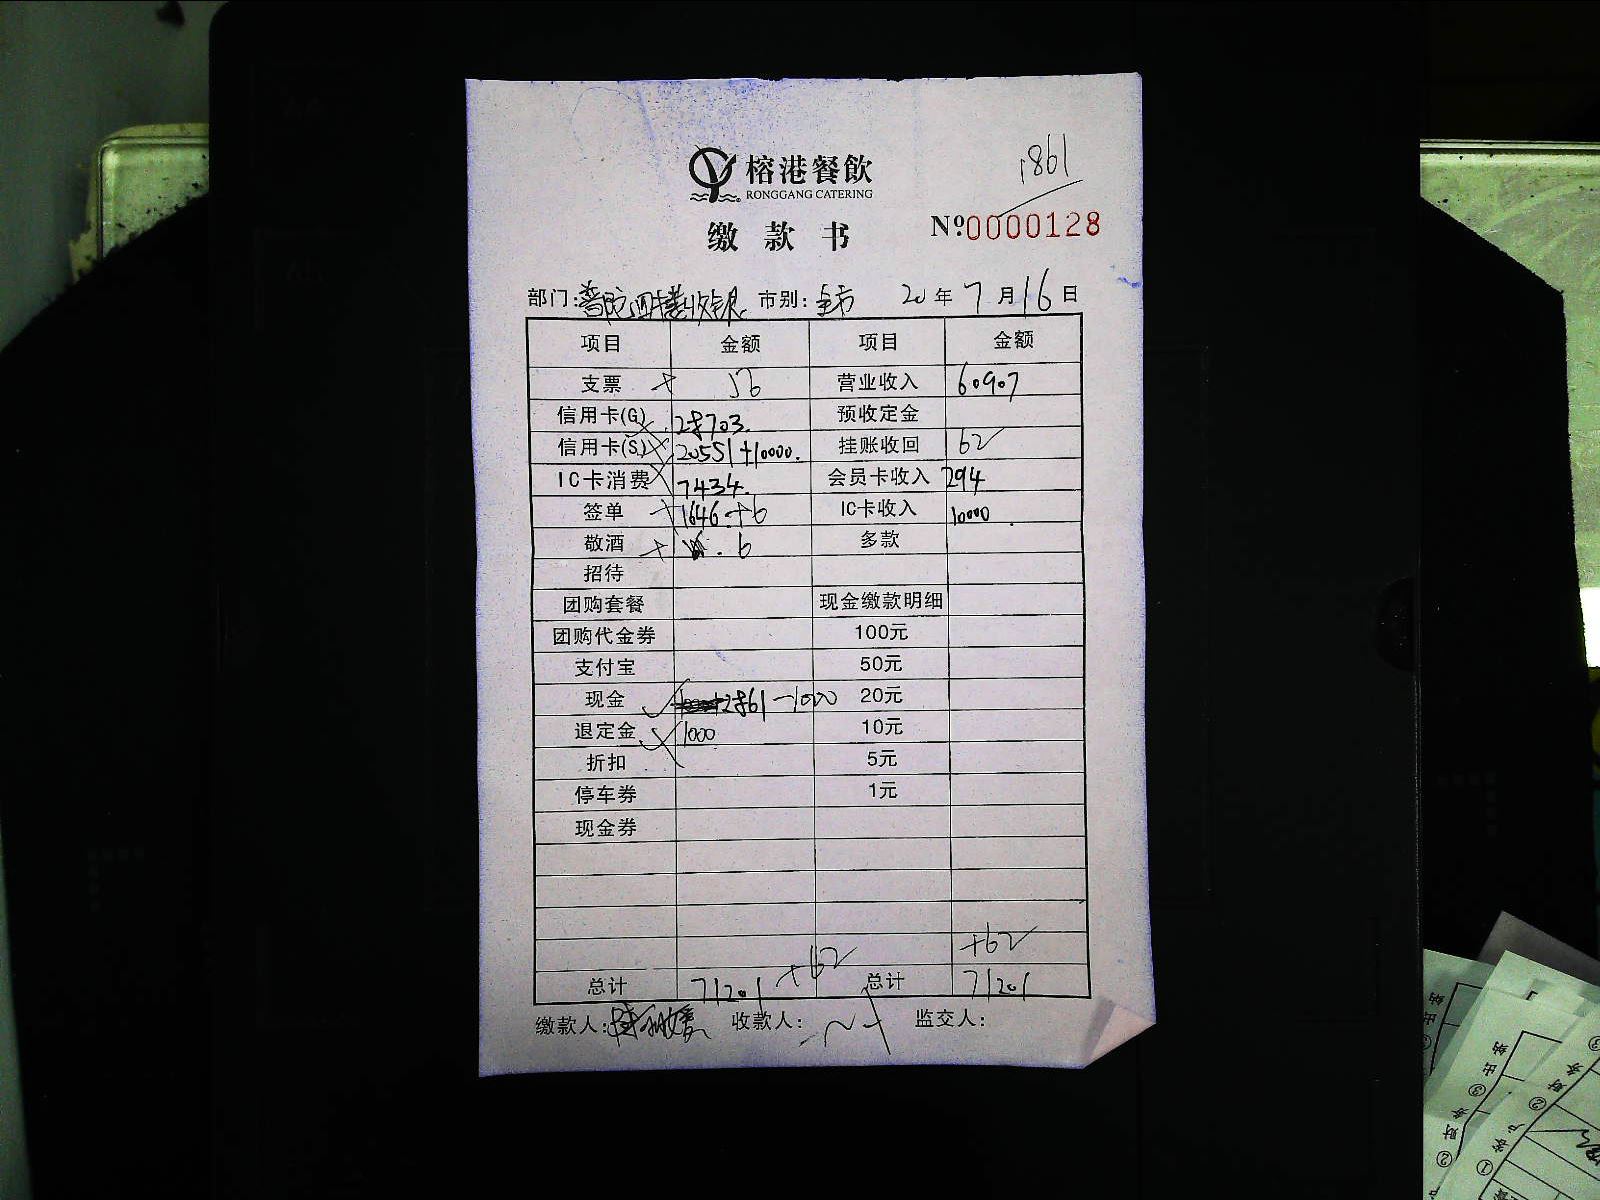 1861
榕港餐飲
RONGGANG CATERING
缴款书
№0000128
部门: 四楼收银 市别: 全市 20年7月16日
项目 金额 项目 金额
支票 56 营业收入 60907
信用卡(G) 28703. 预收定金
信用卡(S) 20551+10000. 挂账收回 62
IC卡消费 7434. 会员卡收入 294
签单 1646.+6 IC卡收入 10000.
敬酒 6 多款
招待
团购套餐 现金缴款明细
团购代金券 100元
支付宝 50元
现金 2861-1000 20元
退定金 1000 10元
折扣 5元
停车券 1元
现金券
+62 +62
总计 71201 总计 71201
缴款人: 收款人: 监交人: